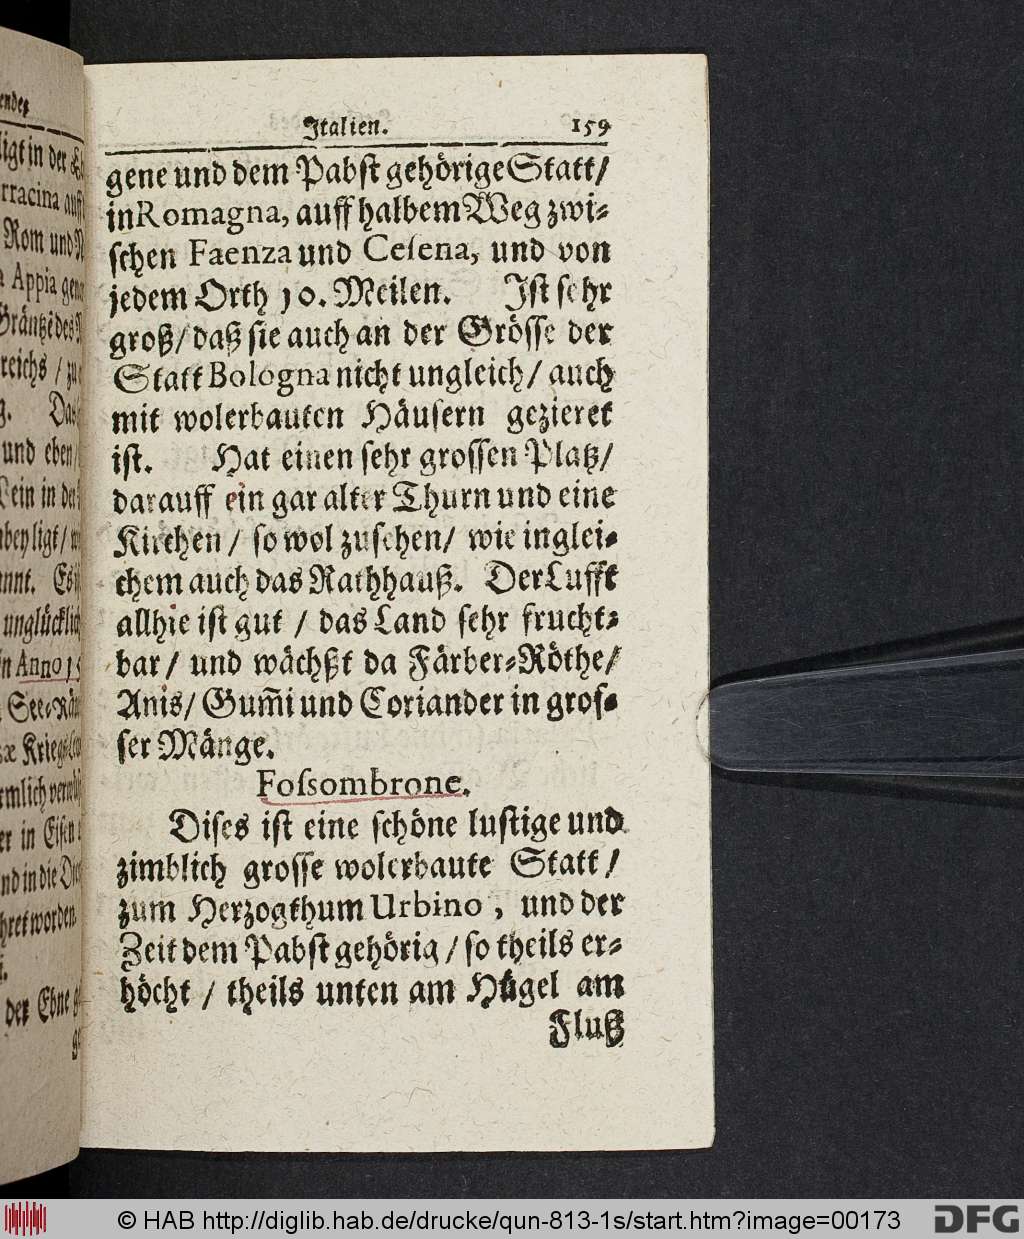 Italien. 159
gene und dem Pabst gehörige Statt/
in Romagna, auff halbem Weg zwi-
schen Faenza und Cesena, und von
jedem Orth 10. Meilen. Ist sehr
groß/ daß sie auch an der Grösse der
Statt Bologna nicht ungleich/ auch
mit wolerbauten Häusern gezieret
ist. Hat einen sehr grossen Platz/
darauff ein gar alter Thurn und eine
Kirchen / so wol zusehen/ wie inglei-
chem auch das Rathhauß. Der Lufft
allhie ist gut / das Land sehr frucht-
bar/ und wächßt da Färber-Röthe/
Anis/ Gum̃i und Coriander in gros-
ser Mänge.
Fossombrone.
Dises ist eine schöne lustige und
zimblich grosse wolerbaute Statt/
zum Herzogthum Urbino, und der
Zeit dem Pabst gehörig / so theils er-
höcht / theils unten am Hügel am
Fluß
ligt in der
Rom und
Appia
reichs / zu
und eben/
unglücklich
in Anno
See-
Krieg
er in Eisen
und in die
der Ebne
© HAB http://diglib.hab.de/drucke/qun-813-1s/start.htm?image=00173
DFG